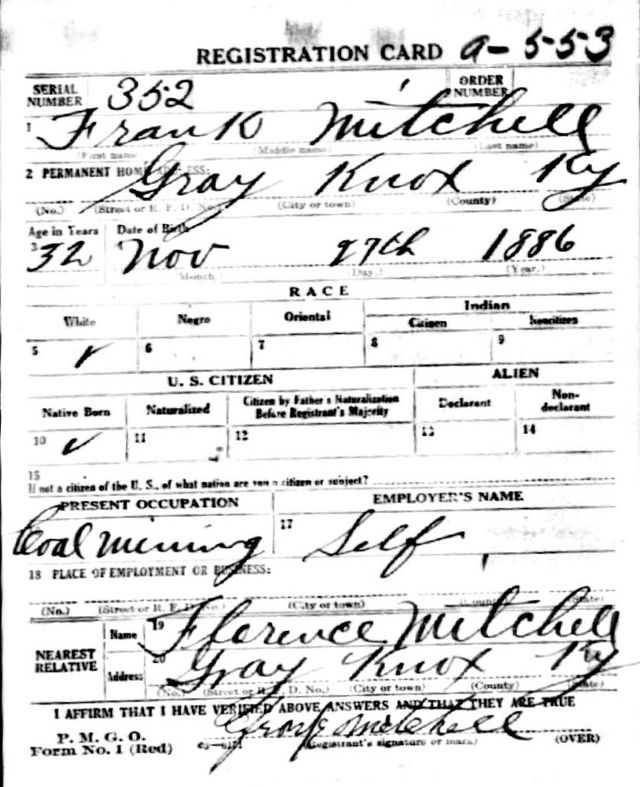 REGISTRATION CARD a-553
SERIAL NUMBER 352 ORDER NUMBER
1 Frank Mitchell
(First name) (Middle name) (Last name)
2 PERMANENT HOME ADDRESS: Gray Knox Ky
(No.) (Street or R. F. D. No.) (City or town) (County) (State)
Age in Years Date of Birth
3 32 Nov 27th 1886
(Month.) (Day.) (Year.)
RACE
White Negro Oriental Indian
Citizen Noncitizen
5 ✓ 6 7 8 9
U. S. CITIZEN ALIEN
Native Born Naturalized Citizen by Father's Naturalization Before Registrant's Majority Declarant Non-declarant
10 ✓ 11 12 13 14
15
If not a citizen of the U. S., of what nation are you a citizen or subject?
PRESENT OCCUPATION EMPLOYER'S NAME
Coal mining 17 Self
18 PLACE OF EMPLOYMENT OR BUSINESS:
(No.) (Street or R. F. D. No.) (City or town) (County) (State)
NEAREST RELATIVE Name 19 Florence Mitchell
Address 20 Gray Knox Ky
(No.) (Street or R. F. D. No.) (City or town) (County) (State)
I AFFIRM THAT I HAVE VERIFIED ABOVE ANSWERS AND THAT THEY ARE TRUE
P. M. G. O.
Form No. 1 (Red) Mitchell
(Registrant's signature or mark) (OVER)